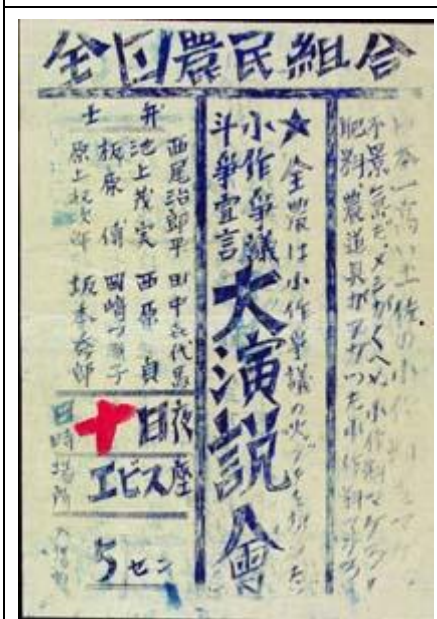 全国農民組合
日本一高い土佐の小作料
不景気だ、メシがくへぬ 小作料マケロ
肥料、農道具がアガツた小作料マケロ
★全農は小作争議の火ブタをきつた
小作争議
斗争宣言
大演説會
弁士
西尾治郎平 田中喜代馬
池上茂実 西原 貞
板原 傳 岡崎つる子
原上 坂本 郎
日時 十日夜
場所 エビス座
入場料 5セン